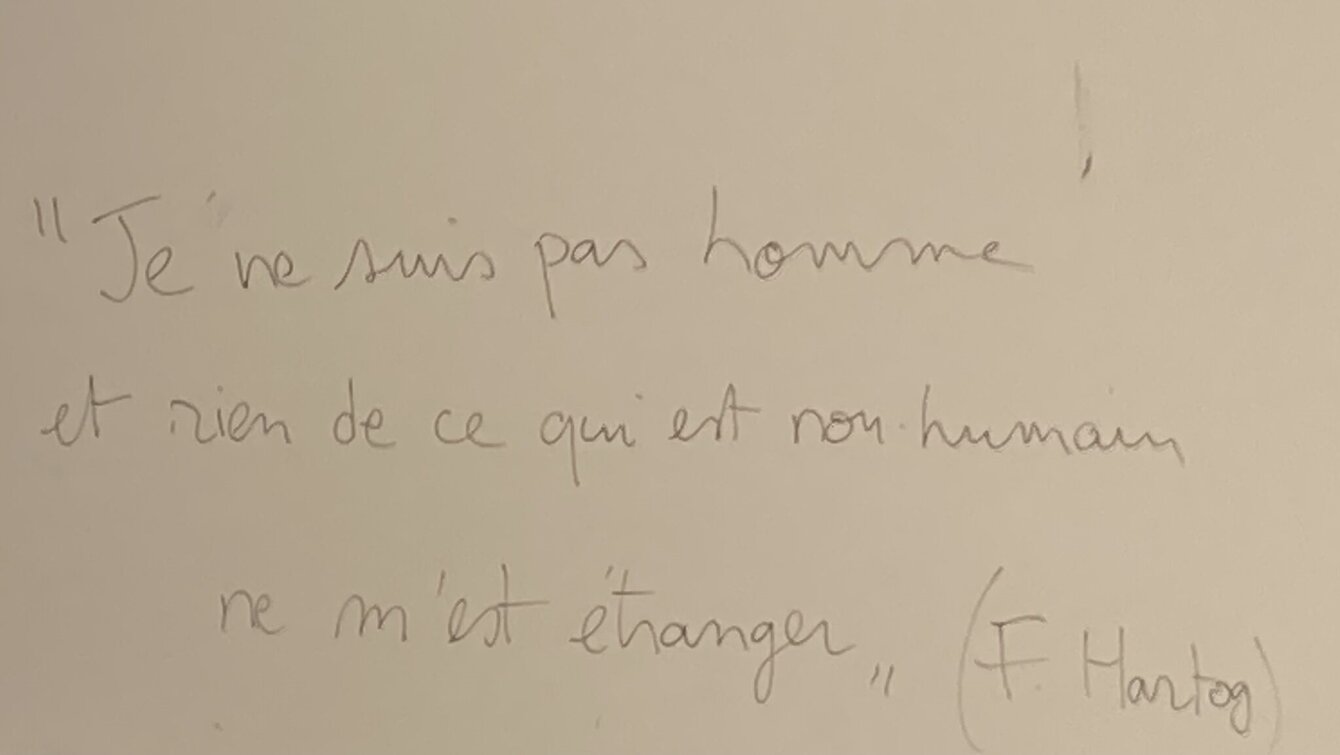 "Je ne suis pas homme
et rien de ce qui est non-humain
ne m'est étranger" (F. Hartog)